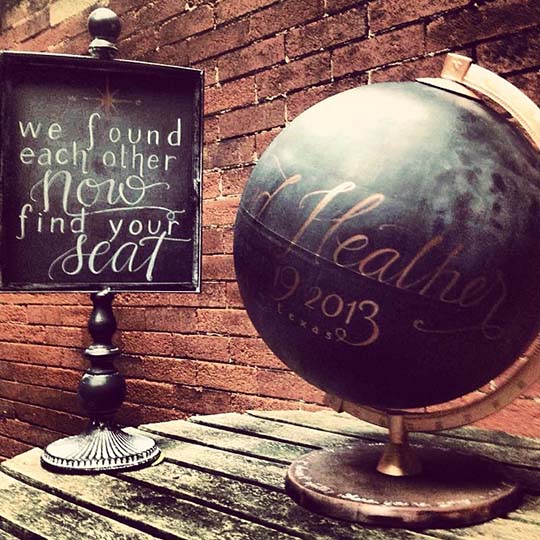 we found
each other
now
find your
seat
Heather
19 2013
texas